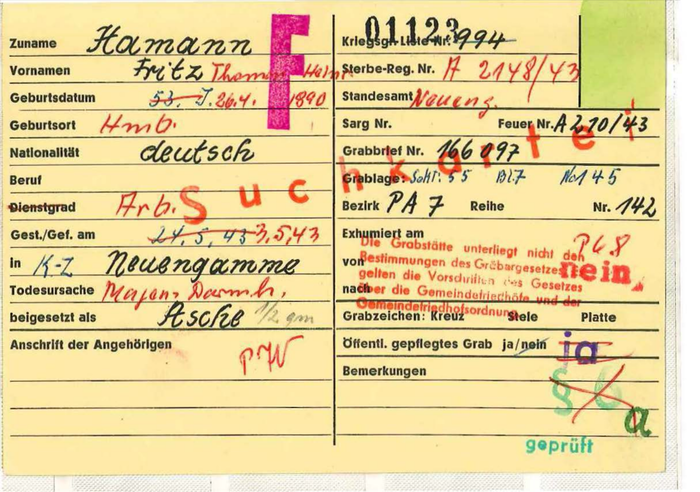 Zuname Hamann
Vornamen Fritz Thomas Heinr.
Geburtsdatum 53. J. 26.4. 1890
Geburtsort Hmb.
Nationalität deutsch
Beruf
Dienstgrad Arb.
Gest./Gef. am 24.5.43 3.5.43
in K-Z Neuengamme
Todesursache Magen Darmk.
beigesetzt als Asche 1/2 qm
Anschrift der Angehörigen
F
Suchkartei
01123
Kriegsgr.-Liste Nr. 994
Sterbe-Reg. Nr. A 2148/43
Standesamt Neueng.
Sarg Nr. Feuer Nr. A 210/43
Grabbrief Nr. 166 097
Grablage: 55 Bl. 7 No 145
Bezirk PA 7 Reihe Nr. 142
Exhumiert am
von
nach
Die Grabstätte unterliegt nicht den
Bestimmungen des Gräbergesetzes
gelten die Vorschriften des Gesetzes
über die Gemeindefriedhöfe und der
Gemeindefriedhofsordnung
nein
Grabzeichen: Kreuz Stele Platte
Öffentl. gepflegtes Grab ja/nein ja
Bemerkungen
§ 6 a
geprüft